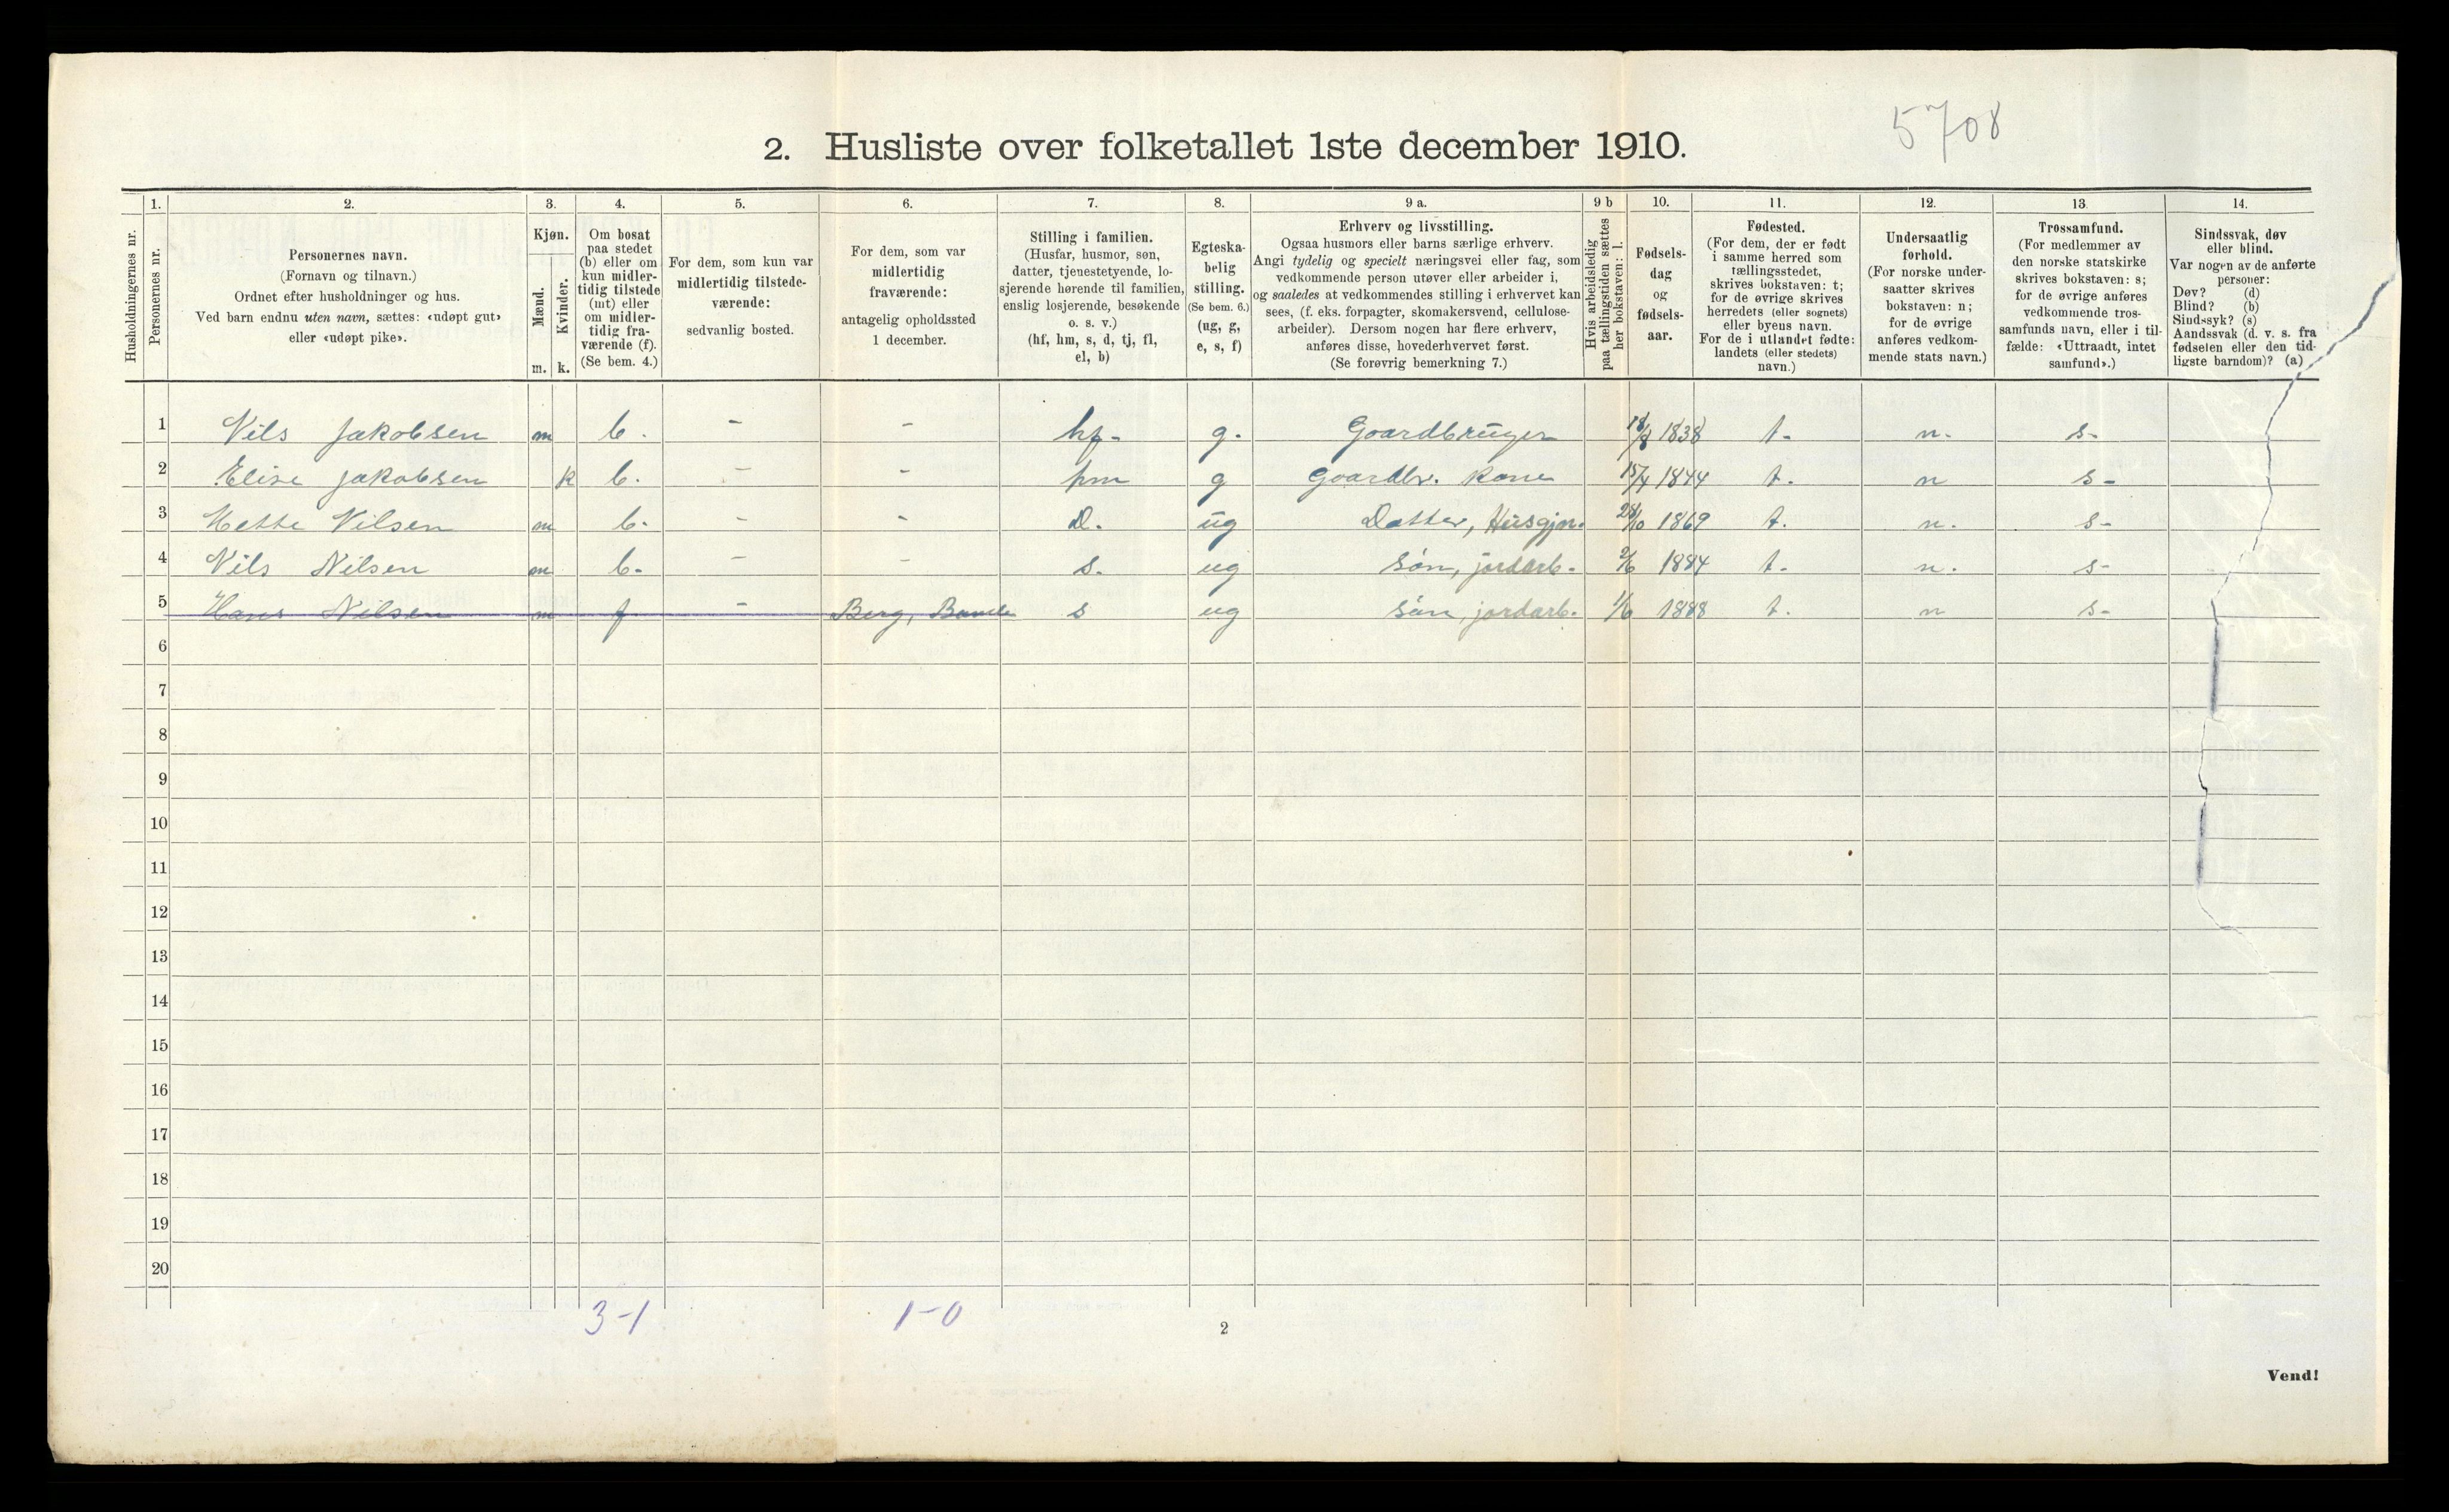 5708
2. Husliste over folketallet 1ste december 1910.
Husholdningernes nr.
1.
Personernes nr.
2.
Personernes navn.
(Fornavn og tilnavn.)
Ordnet efter husholdninger og hus.
Ved barn endnu uten navn, sættes: «udøpt gut»
eller «udøpt pike».
3.
Kjøn.
Mænd.
Kvinder.
m. k.
4.
Om bosat
paa stedet
(b) eller om
kun midler-
tidig tilstede
(mt) eller
om midler-
tidig fra-
værende (f).
(Se bem. 4.)
5.
For dem, som kun var
midlertidig tilstede-
værende:
sedvanlig bosted.
6.
For dem, som var
midlertidig
fraværende:
antagelig opholdssted
1 december.
7.
Stilling i familien.
(Husfar, husmor, søn,
datter, tjenestetyende, lo-
sjerende hørende til familien,
enslig losjerende, besøkende
o. s. v.)
(hf, hm, s, d, tj, fl,
el, b)
8.
Egteska-
belig
stilling.
(Se bem. 6.)
(ug, g,
e, s, f)
9 a.
Erhverv og livsstilling.
Ogsaa husmors eller barns særlige erhverv.
Angi tydelig og specielt næringsvei eller fag, som
vedkommende person utøver eller arbeider i,
og saaledes at vedkommendes stilling i erhvervet kan
sees, (f. eks. forpagter, skomakersvend, cellulose-
arbeider). Dersom nogen har flere erhverv,
anføres disse, hovederhvervet først.
(Se forøvrig bemerkning 7.)
9 b
Hvis arbeidsledig
paa tællingstiden sættes
her bokstaven: l.
10.
Fødsels-
dag
og
fødsels-
aar.
11.
Fødested.
(For dem, der er født
i samme herred som
tællingsstedet,
skrives bokstaven: t;
for de øvrige skrives
herredets (eller sognets)
eller byens navn.
For de i utlandet fødte:
landets (eller stedets)
navn.)
12.
Undersaatlig
forhold.
(For norske under-
saatter skrives
bokstaven: n;
for de øvrige
anføres vedkom-
mende stats navn.)
13.
Trossamfund.
(For medlemmer av
den norske statskirke
skrives bokstaven: s;
for de øvrige anføres
vedkommende tros-
samfunds navn, eller i til-
fælde: «Uttraadt, intet
samfund».)
14.
Sindssvak, døv
eller blind.
Var nogen av de anførte
personer:
Døv? (d)
Blind? (b)
Sindssyk? (s)
Aandssvak (d. v. s. fra
fødselen eller den tid-
ligste barndom)? (a)
1 Nils Jakobsen m b. - - hf- g. Goardbruger 1838 t. n. s-
2 Elise Jakobsen k b. - - hm g Goardbr. kone 1844 t. n s-
3 Mette Nilsen m b. - - D. ug Datter, Husgjn. 28/10 1869 t. n. s-
4 Nils Nilsen m b. - - s. ug Søn, jordarb. 2/6 1884 t. n. s-
5 Hans Nilsen m f - Berg, Bamle s ug Søn, jordarb. 1/6 1888 t. n s-
6
7
8
9
10
11
12
13
14
15
16
17
18
19
20
3-1 1-0
2
Vend!